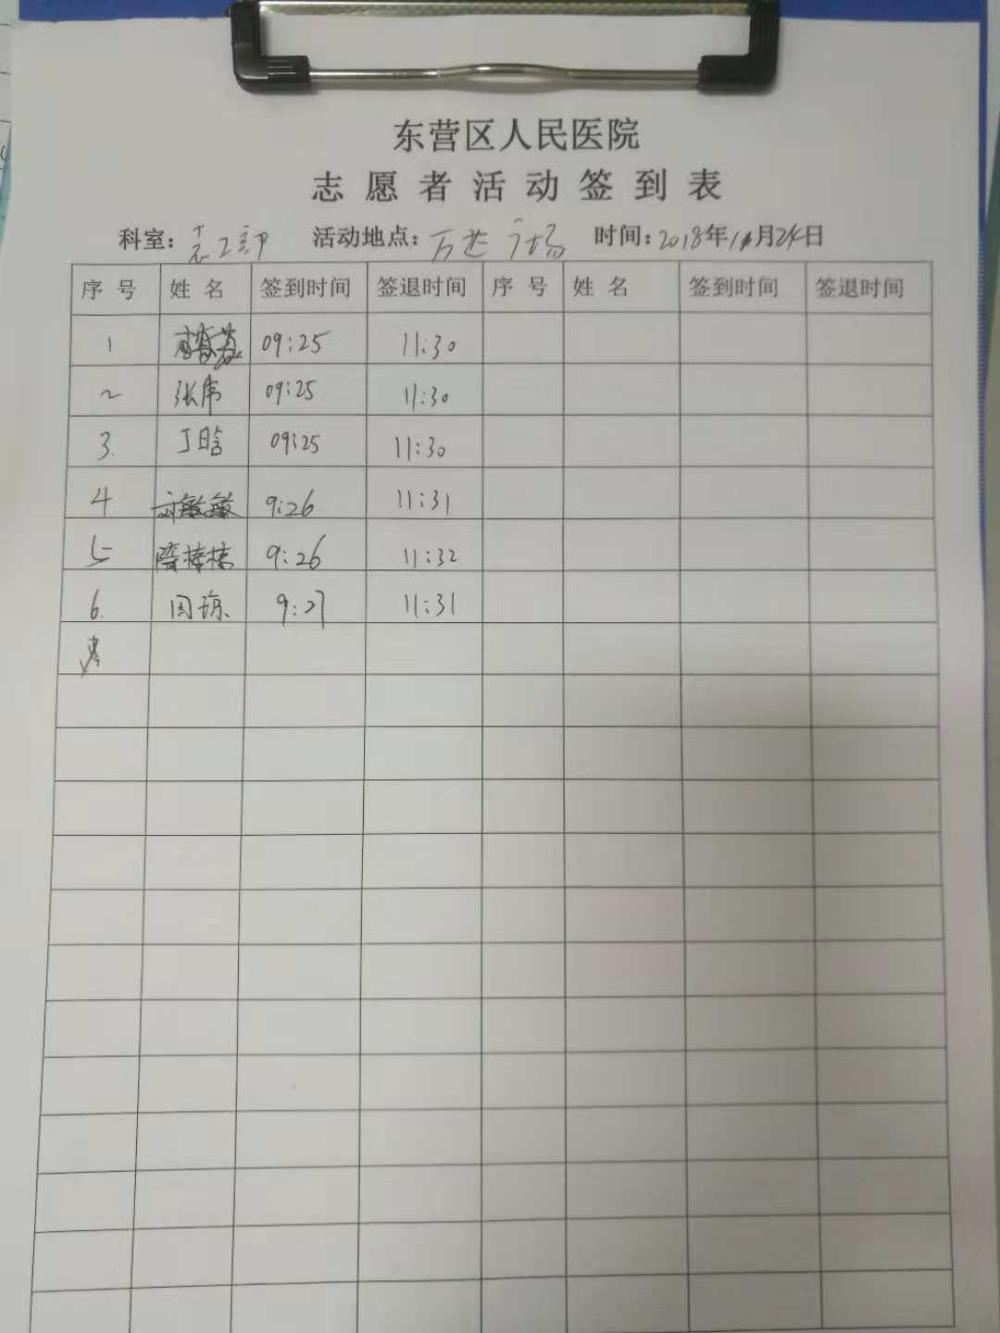 东营区人民医院
志愿者活动签到表
科室: 志工部 活动地点: 万芒广场 时间: 2018年11月24日
序号 姓名 签到时间 签退时间 序号 姓名 签到时间 签退时间
1 09:25 11:30
2 张伟 09:25 11:30
3. 丁晗 09:25 11:30
4 刘敏敏 9:26 11:31
5 9:26 11:32
6. 周琼 9:27 11:31